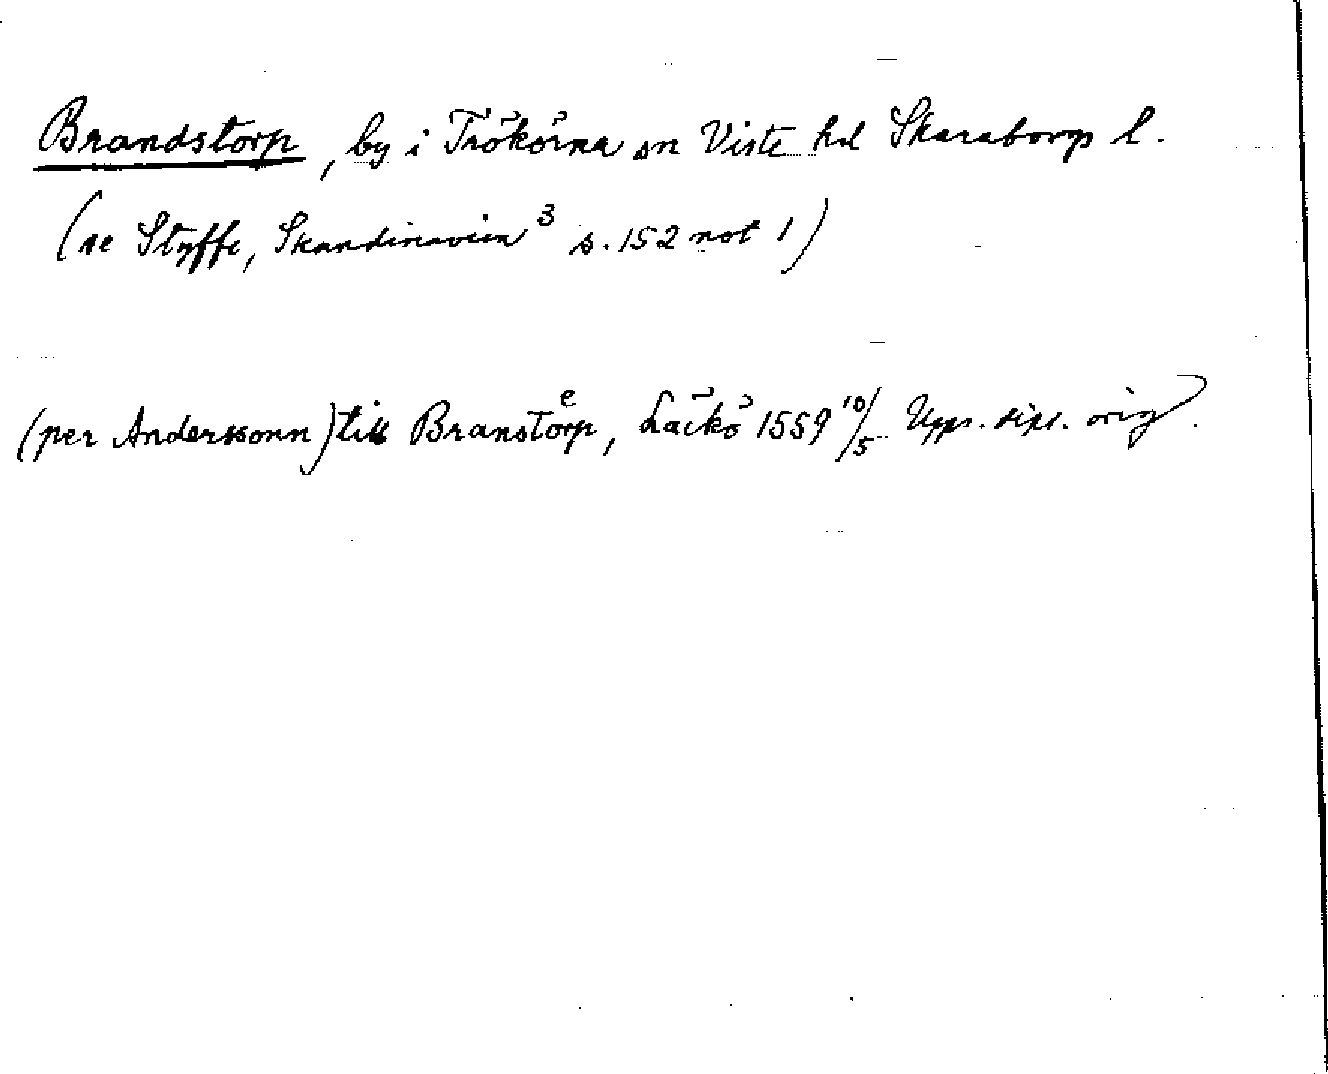 Brandstorp, by i Trökörna sn Viste hd Skaraborgs l.
(se Styffe, Skandinavien³ s. 152 not 1)
(per Anderssonn) till Branstoͤrp, Läckö 1559 10/5 Upps. dipl. orig.